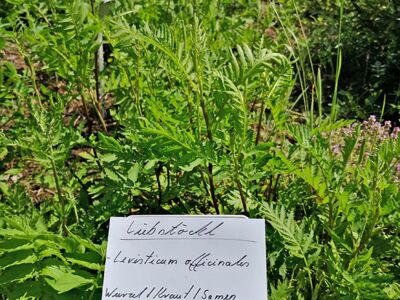 Liebstöckl
- Levisticum officinales
Wurzel / Kraut / Samen